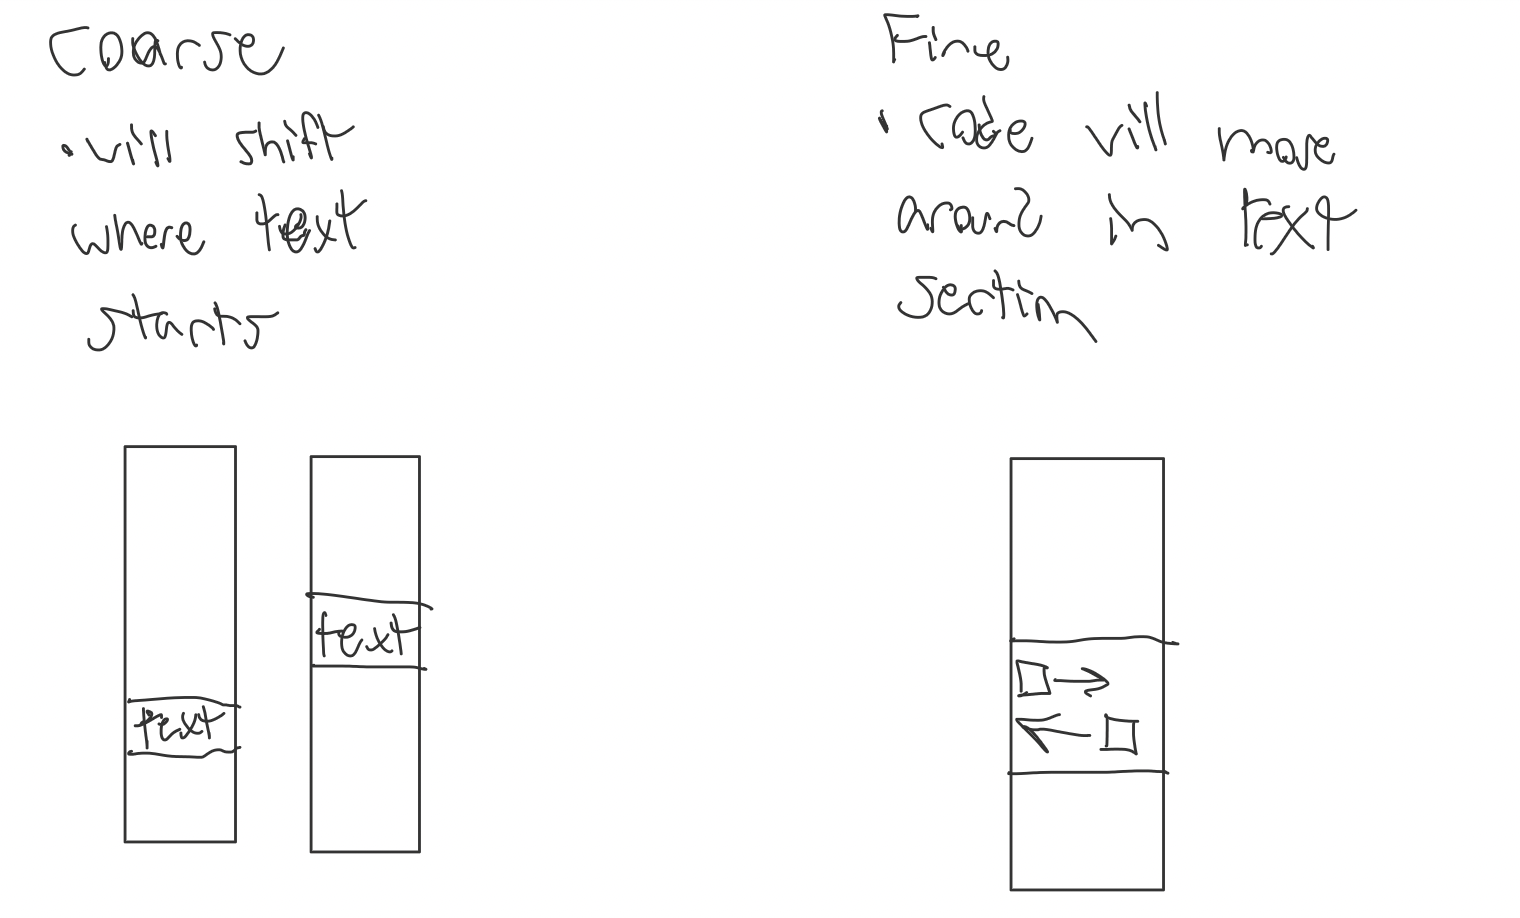 Coarse
• will shift
where text
starts
text
text
Fine
• Code will move
around in text
section